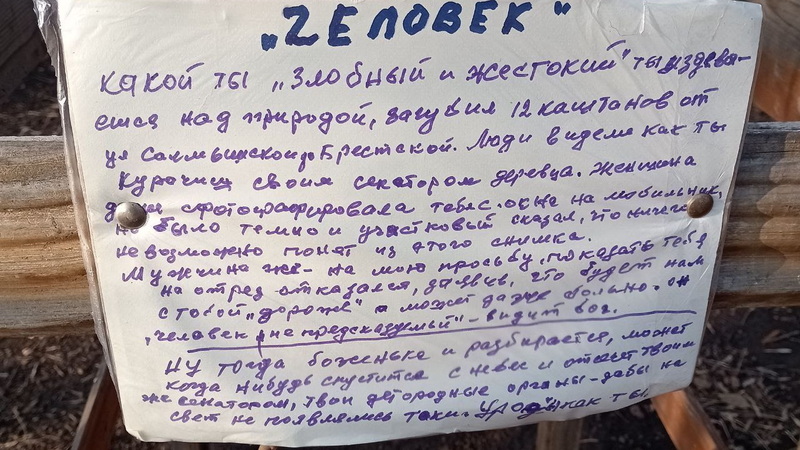 „ЧЕЛОВЕК"
какой ты „Злобный и жестокий" ты издева-
ешся над природой, загубил 12 каштанов от
ул до Брестской. Люди видели как ты
своим секатором деревца. Женщина
даже сфотографировала тебя с окна на мобильник,
но было темно и участковый сказал, что ничего
невозможно понят из этого снимка.
Мужчина же - на мою просьбу, показать тебя
на отрез отказался, заявив, что будет нам
с тобой „дороже" а может даже больно. он
„человек не предсказуемый" - видит бог.
Ну тогда боженька и разбирается, может
когда нибудь спустится с небес и отсечет твоим
же секатором, твои детородные органы - дабы на
свет не появлялись такие „Уроды" как ты.